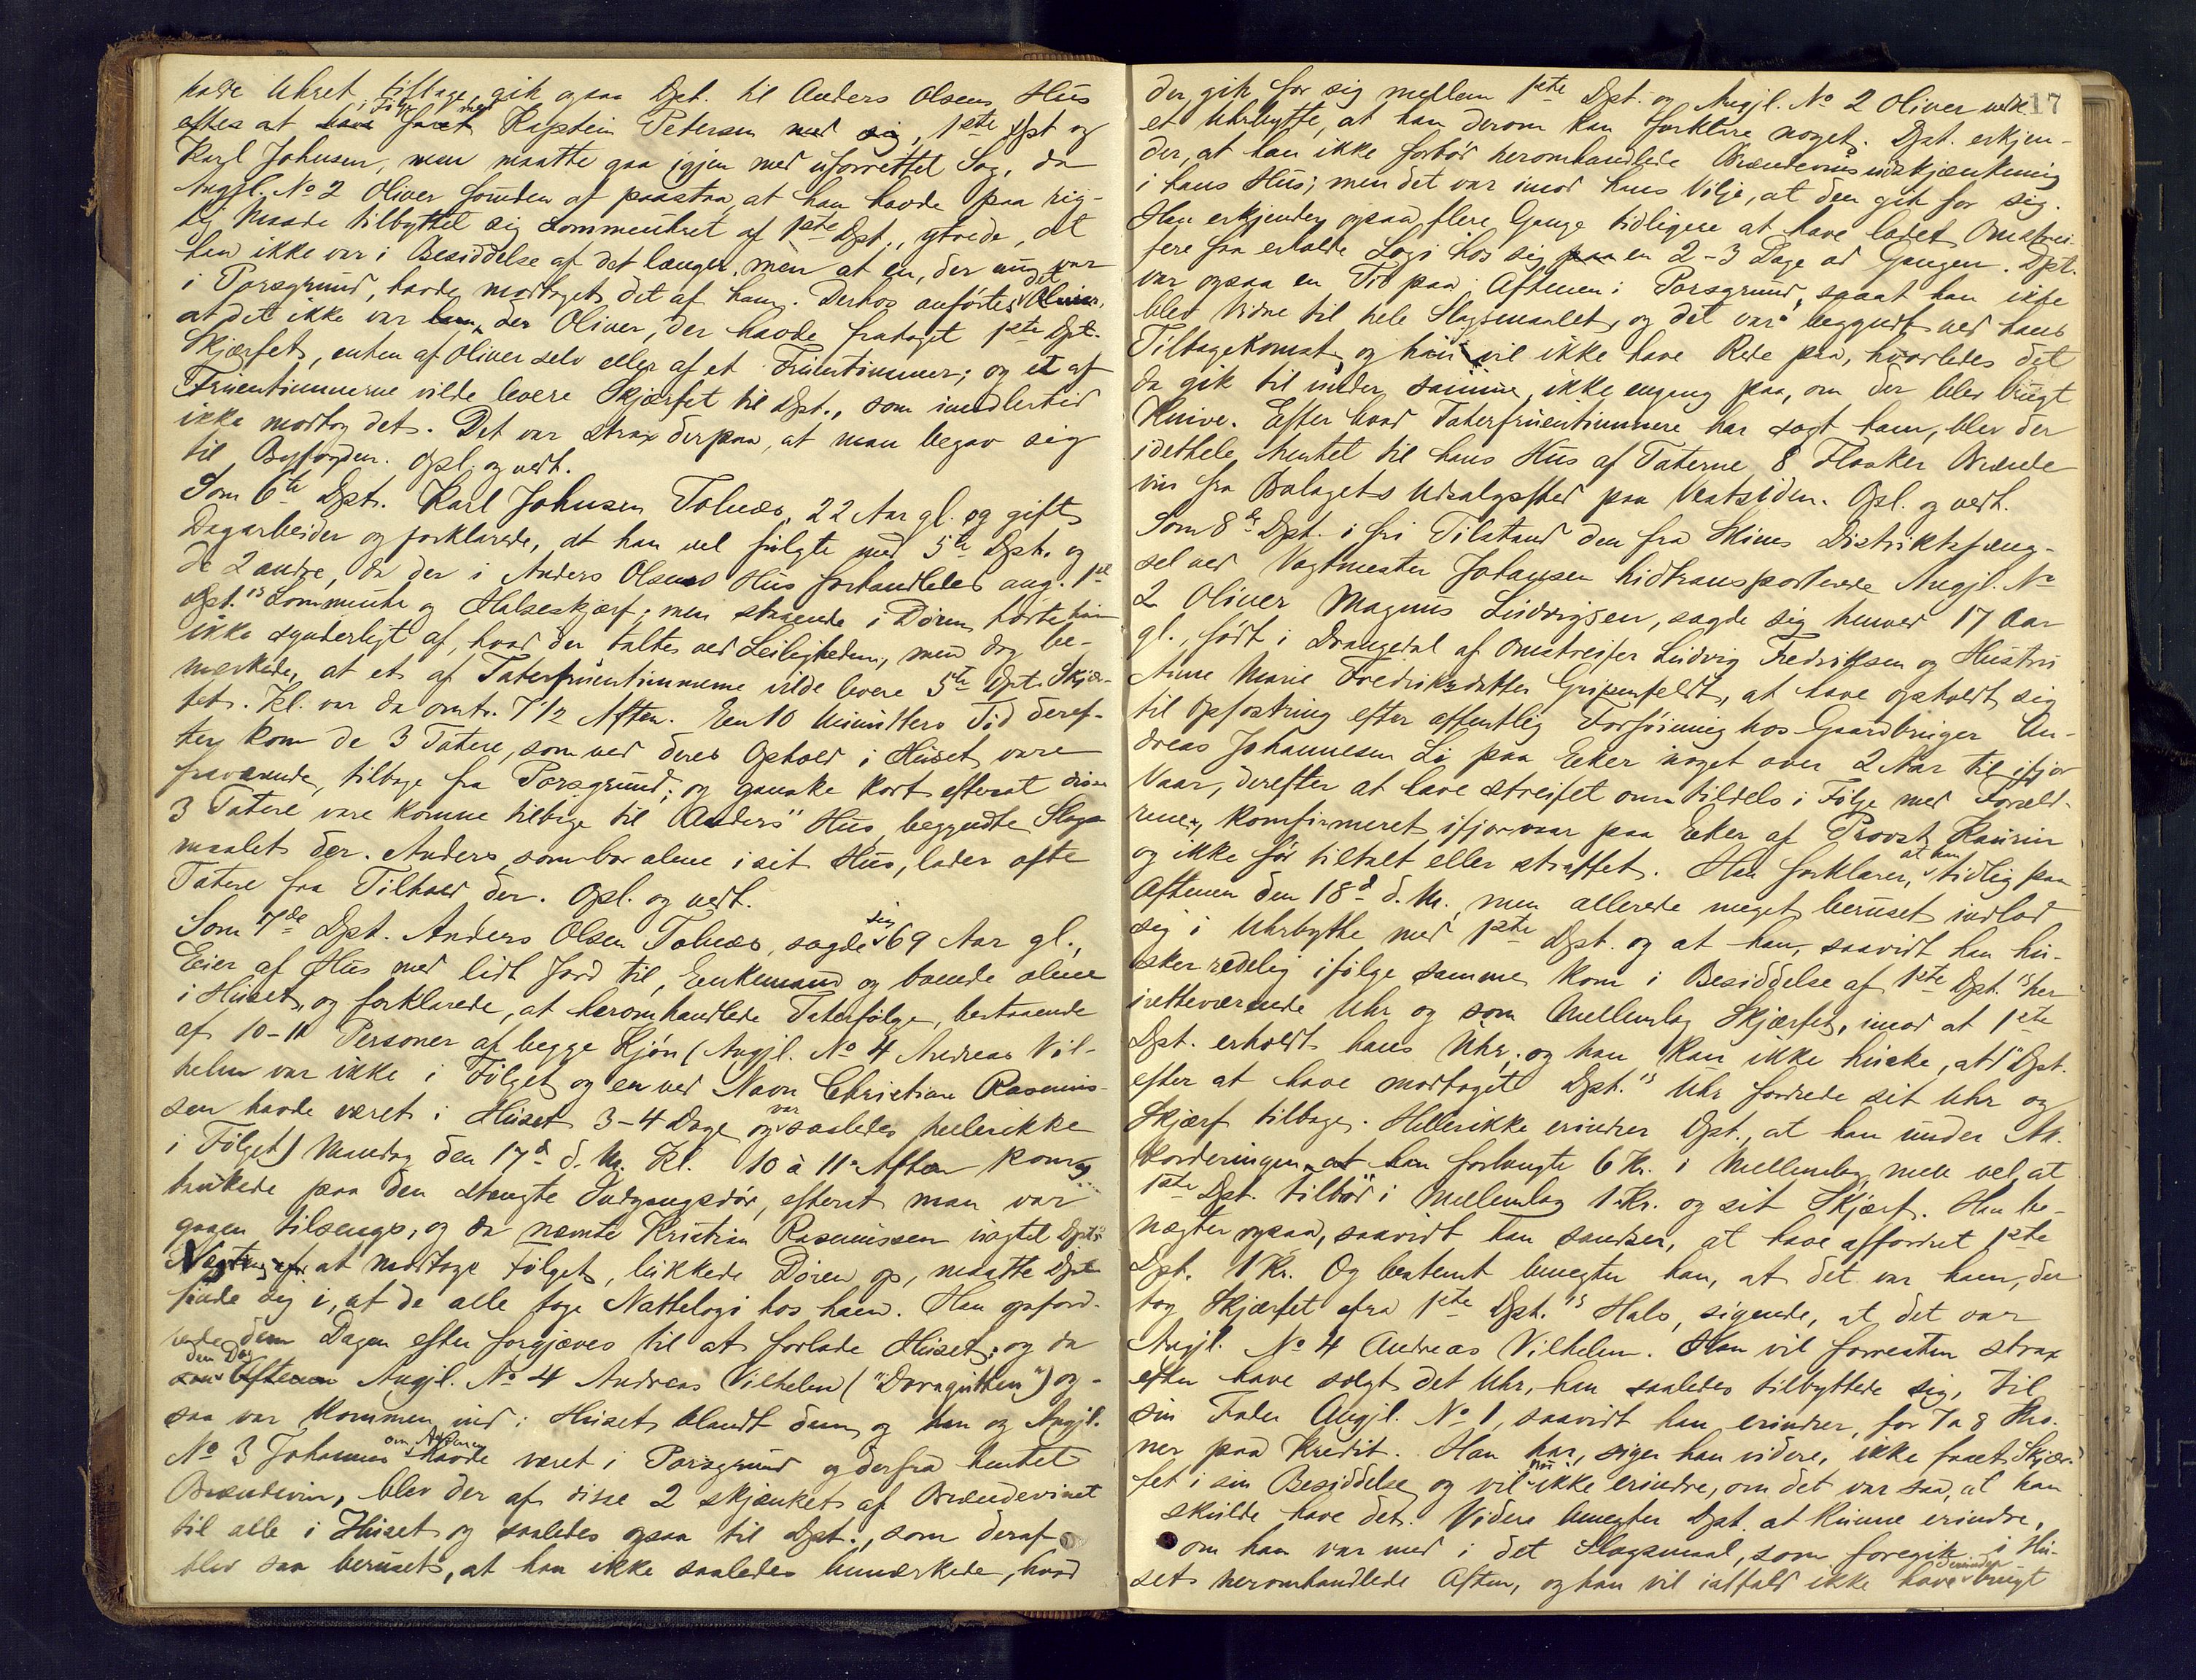 halde Uhret tilbage, gik ogsaa Dpt. til Anders Olsens Hus
efter at i Følge med Kaptein Petersen, 1ste Dpt og
Karl Johnsen, men maatte gaa igjen med uforrettet Sag, da
Angjl. No 2 Oliver foruden at paastaa, at han havde paa rig-
tig Maade tilbyttet sig Lommeuhret af 1ste Dpt., ytrede, at
han ikke var i Besiddelse af det længer, men at en, der nu var
i Porsgrund, havde modtaget det af ham. Derhos anførtes det
at det ikke var den Oliver, der havde frataget 1ste Dpt.
Skjærfet, enten af Oliver selv eller af et Fruentimmer; og et af
Fruentimmerne vilde levere Skjærfet til Dpt., som imidlertid
ikke modtog det. Det var strax derpaa, at man begav sig
til Byfogden. Opl. og vedt.
Som 6te Dpt. Karl Johnsen Tolnæs, 22 Aar gl. og gift,
Dagarbeider og forklarede, at han vel fulgte med 5te Dpt. og
de 2 andre, da der i Anders Olsens Hus forhandledes ang. 1ste
Dpt.'s Lommeuhr og Halsskjærf; men staaende i Døren hørte han
ikke synderligt af, hvad der taltes ved Leiligheden, men dog be-
mærkede, at et af Taterfruentimmerne vilde levere 5te Dpt. Skjær-
fet. Kl. var da omtr. 7 1/2 Aften. Een 10 Minutters Tid deref-
ter kom de 3 Tatere, som ved deres Ophold i Huset vare
fraværende, tilbage fra Porsgrund; og ganske kort efterat disse
3 Tatere vare komne tilbage til Anders' Hus, begyndte Slags-
maalet der. Anders, som bor alene i sit Hus, lader ofte
Tatere faa Tilhold der. Opl. og vedt.
Som 7de Dpt. Anders Olsen Tolnæs, sagde sig 69 Aar gl.,
Eier af Hus med lidt Jord til, Enkemand og boende alene
i Huset, og forklarede, at heromhandlede Taterfølge, bestaaende
af 10-11 Personer af begge Kjøn (Angjl. No 4 Andreas Vil-
helm var ikke i Følget og en ved Navn Christian Rasmus-
sen havde været i Huset 3-4 Dage og var saaledes hellerikke
i Følget) Mandag den 17de d. M. Kl. 10 à 11 Aften kom og
bankede paa den stængte Indgangsdør, efterat man var
gaaen tilsengs; og da nævnte Kristian Rasmussen uagtet Dpt.'s
Nægtelse af at modtage Følget, lukkede Døren op, maatte Dpt
finde sig i, at de alle toge Natteloge hos ham. Han opford-
rede dem Dagen efter forgjæves til at forlade Huset; og da
den Dag Aftenen Angjl. No 4 Andreas Vilhelm ("Doragutten") og-
saa var kommen ind i Huset blandt dem og han og Angjl.
No 3 Johannes om Aftenen havde været i Porsgrund og derfra hentet
Brændevin, blev der af disse 2 skjænket af Brændevinet
til alle i Huset og saaledes ogsaa til Dpt., som deraf
blev saa beruset, at han ikke saaledes bemærkede, hvad
17
der gik for sig mellem 1ste Dpt. og Angjl. No 2 Oliver ved
et Uhrbytte, at han derom kan forklare noget. Dpt. erkjen-
der, at han ikke forbød heromhandlede Brændevinsudskjænkning
i hans Hus; men det var imod hans Vilje, at den gik for sig.
Han erkjender ogsaa flere Gange tidligere at have ladet Omstrei-
fere faa erholde Logi hos sig en 2-3 Dage ad Gangen. Dpt.
var ogsaa en Tid paa Aftenen i Porsgrund, saaat han ikke
blev Vidne til hele Slagsmaalet, og det var begyndt ved hans
Tilbagekomst, og han vil ikke have Rede paa, hvorledes det
da gik til under samme, ikke engang paa, om der blev brugt
Knive. Efter hvad Taterfruentimmere har sagt ham, blev der
idethele hentet til hans Hus af Taterne 8 Flasker Brænde-
vin fra Bolagets Udsalgssted paa Vestsiden. Opl. og vedt.
Som 8de Dpt. i fri Tilstand den fra Skiens Distriktsfæng-
sel ved Vagtmester Johansen hidtransporterede Angjl. No
2 Oliver Magnus Ludvigsen, sagde sig henved 17 Aar
gl., født i Drangedal af Omstreifer Ludvig Fredriksen og Hustru
Anne Marie Fredriksdatter Gripenfeldt, at have opholdt sig
til Opfostring efter offentlig Forføining hos Gaardbruger An-
dreas Johannesen Li paa Eeker noget over 2 Aar til ifjor
Vaar, derefter at have streifet om tildels i Følge med Foræld-
rene, konfirmeret ifjorvaar paa Eeker af Provst Kaurin
og ikke før tiltalt eller straffet. Han forklarer, at han tidlig paa
Aftenen den 18de d. M., men allerede meget beruset indlod
sig i Uhrbytte med 1ste Dpt. og at han, saavidt han hu-
sker redelig ifølge samme kom i Besiddelse af 1ste Dpt.'s her
iretteværende Uhr og som Mellemlag Skjærfet, imod at 1ste
Dpt. erholdt hans Uhr; og han kan ikke huske, at 1 Dpt.
efter at have modtaget Dpt.'s Uhr fordrede sit Uhr og
Skjærf tilbage. Hellerikke erindrer Dpt., at han under Ak-
korderingen forlangte 6 Kr. i Mellemlag, men vel at
1ste Dpt. tilbød i Mellemlag 1 Kr. og sit Skjærf. Han be-
nægter ogsaa, saavidt han sandser, at have affordret 1ste
Dpt. 1 Kr. Og bestemt benegter han, at det var ham, der
tog Skjærfet fra 1ste Dpt.'s Hals, sigende, at det var
Angjl. No 4 Andreas Vilhelm. Han vil forresten strax
efter have solgt det Uhr, han saaledes tilbyttede sig, til
sin Fader Angjl. No 1, saavidt han erindrer, for 7 a 8 Kro-
ner paa Kredit. Han har, siger han videre, ikke faaet Skjær-
fet i sin Besiddelse og vil nu ikke erindre, om det var saa, at han
skulde have det. Videre benegter Dpt. at kunne erindre,
om han var med i det Slagsmaal, som foregik i Hu-
set heromhandlede Aften, og han vil ialfald ikke have derunder brugt